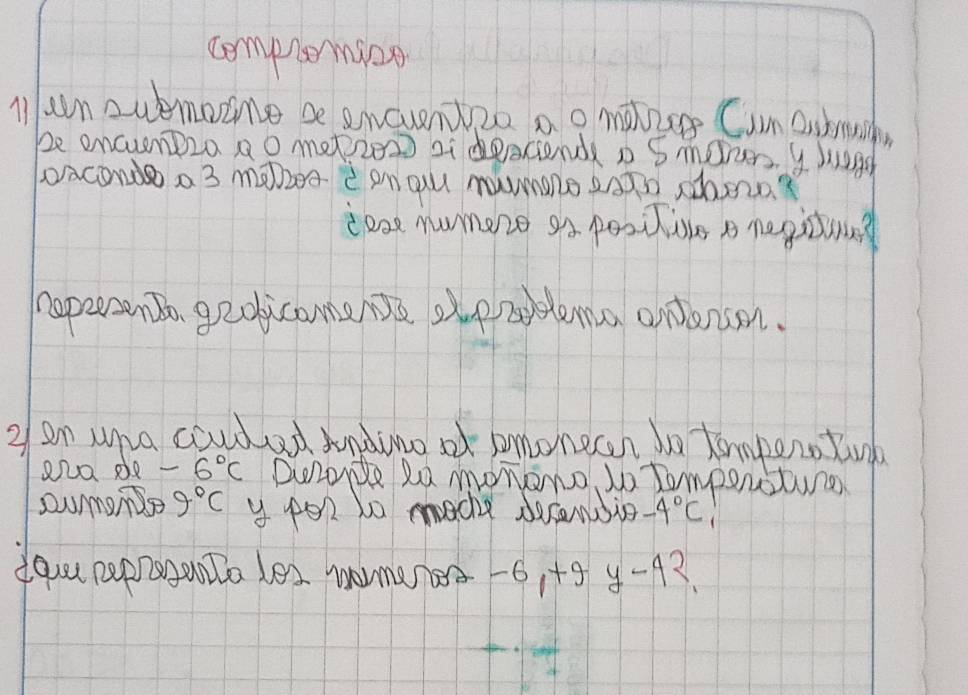 compromiso
1) un submarino se encuentra a 0 metros (un submarino
se encuentra a 0 metros) si desciende a 5 metros y luego
asconde a 3 metros ¿en que numero esta ahora?
¿ese numero es positivo o negativo?
representa graficamente el problema anterior.
2) en una ciudad andina al amanecer la temperatura
era de -6°C Durante la mañana, la temperatura
aumento 9°C y por la noche desendio -4°C,
¿que representa los numeros -6, +9 y -4?